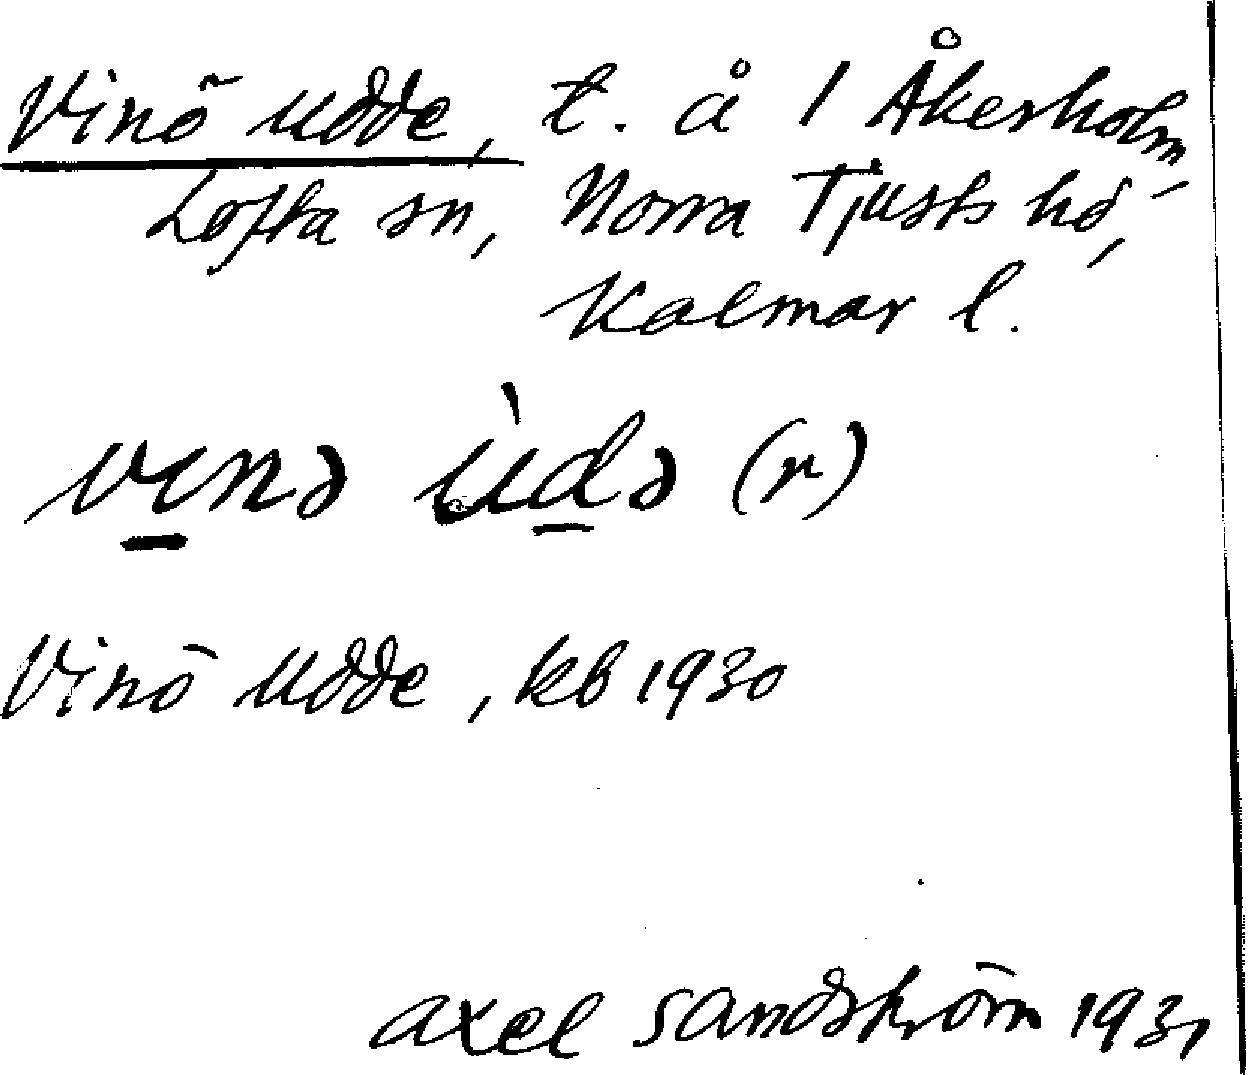 Vinö Udde, t. å 1 Åkerholm
Lofta sn, Norra Tjusts hd,
Kalmar l.
vinə ùdə (r)
Vinö Udde, kb 1930
Axel Sandström 1931